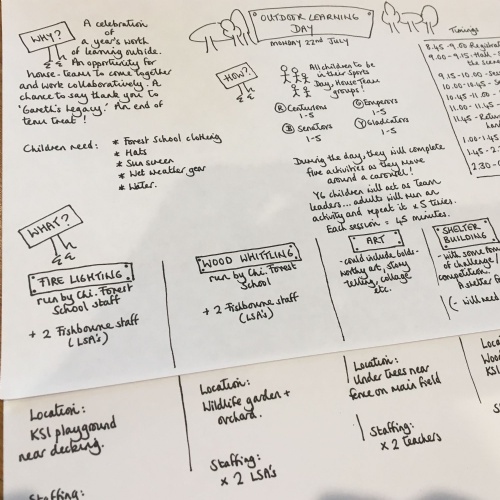 WHY?
A celebration
of
a year's worth
of learning outside.
An opportunity for
house-teams to come together
and work collaboratively. A
chance to say thank you to
'Gareth's Legacy.' An end of
term treat!
Children need: * Forest School clothing
* Hats
* Sun screen
* Wet weather gear
* Water.
OUTDOOR LEARNING
DAY
MONDAY 22ND JULY
HOW?
All children to be
in their Sports
Day, House Team
groups!
R Centurions
1-5
G Emperors
1-5
B Senators
1-5
Y Gladiators
1-5
During the day, they will complete
five activities as they move
around a carousel!
Y6 children will act as Team
leaders... adults will run an
activity and repeat it x 5 times.
Each session = 45 minutes.
Timings
8.45-9.00
9.00-9.15
9.15-10.00
10.00-10.45
10.45-11.00
11.00-11.45
11.45
1.00-1.45
1.45-2.
2.30-
WHAT?
FIRE LIGHTING
run by Chi. Forest
School staff
+ 2 Fishbourne staff
(LSA's)
WOOD WHITTLING
run by Chi. Forest
School
+ 2 Fishbourne staff
(LSA's)
ART
- could include Golds-
worthy art, story
telling, collage
etc.
SHELTER
BUILDING
- with some form
of challenge/
competition.
A shelter
(- will need
Location:
KS1 playground
near decking.
Staffing:
Location:
Wildlife garden +
orchard.
Staffing:
x 2 LSA's
Location:
Under trees near
fence on main field
Staffing:
x 2 teachers
KS1